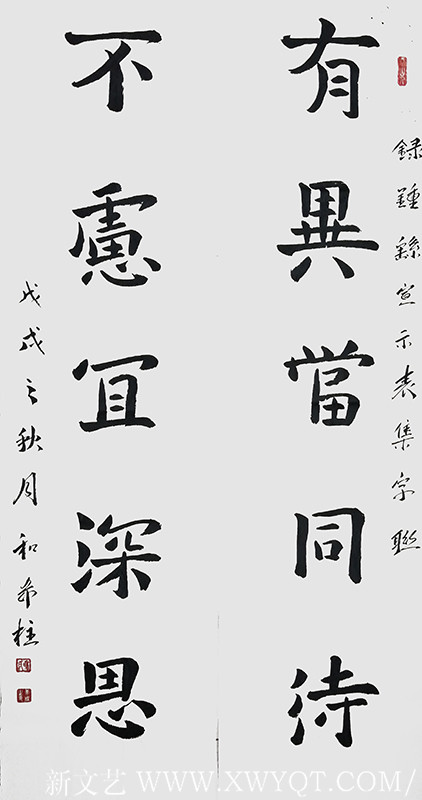 録鍾繇宣示表集字聯
有異當同待
不慮冝深思
戊戌之秋月和希柱
新文艺 WWW.XWYQT.COM/